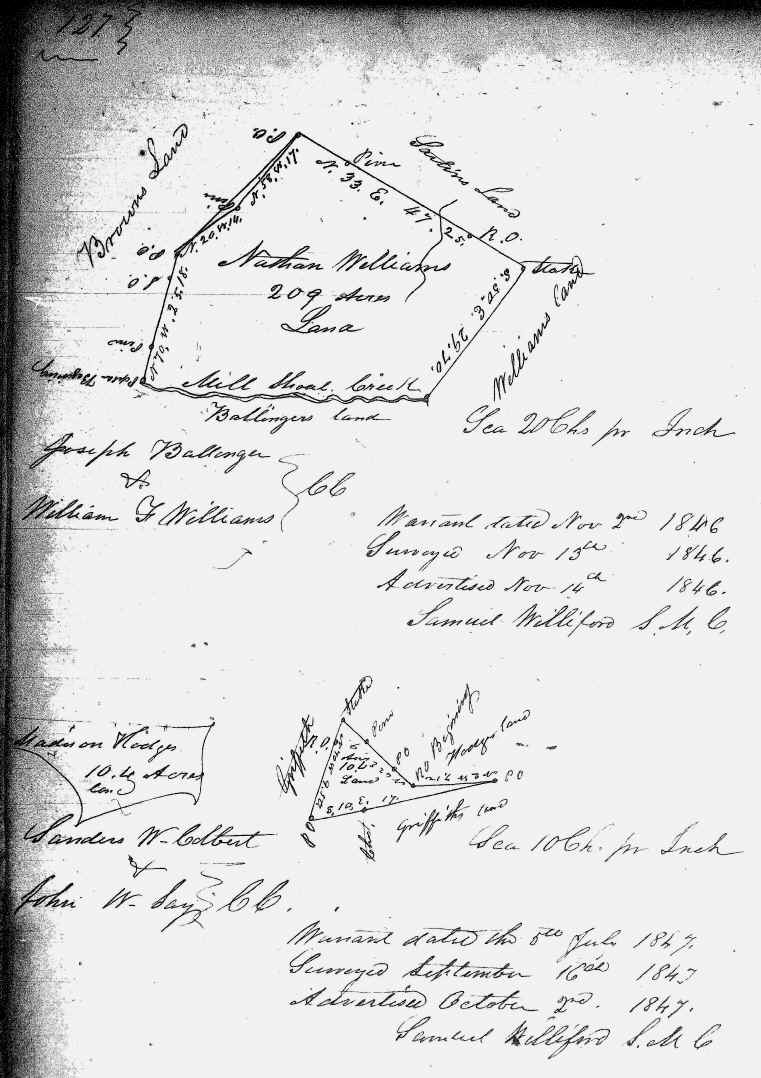 127
P.O.
Pine
Browns Land
N. 33. E. 47.
25.
R.O.
Stake
N. 58. W. 17.
N. 20. W. 14.
P.O.
S.O.
Nathan Williams
209 Acres
Land
S. 50. E.
29. 70.
Williams land
Pine
Beginning
Mill Shoal Creek
Ballingers land
Sca 20 Chs pr Inch
Joseph Ballenger
&
William F Williams
CC
Warrant dated Nov 2nd 1846
Surveyed Nov 13th 1846.
Advertised Nov 14th 1846.
Samuel Williford S. M. C.
Madison Hodges
10.4 Acres
land
Griffith
Stake
R.O.
Pine
P O
R O Begining
Hodges land
P O
10.4
Land
S, 10, E. 17.
P O
Chst.
Griffiths land
Sca 10 Ch. pr Inch
Sanders W. Colbert
&
John W. Gay
CC.
Warrant dated the 5th July 1847.
Surveyed September 16th 1847
Advertised October 2nd. 1847.
Samuel Williford S. M C